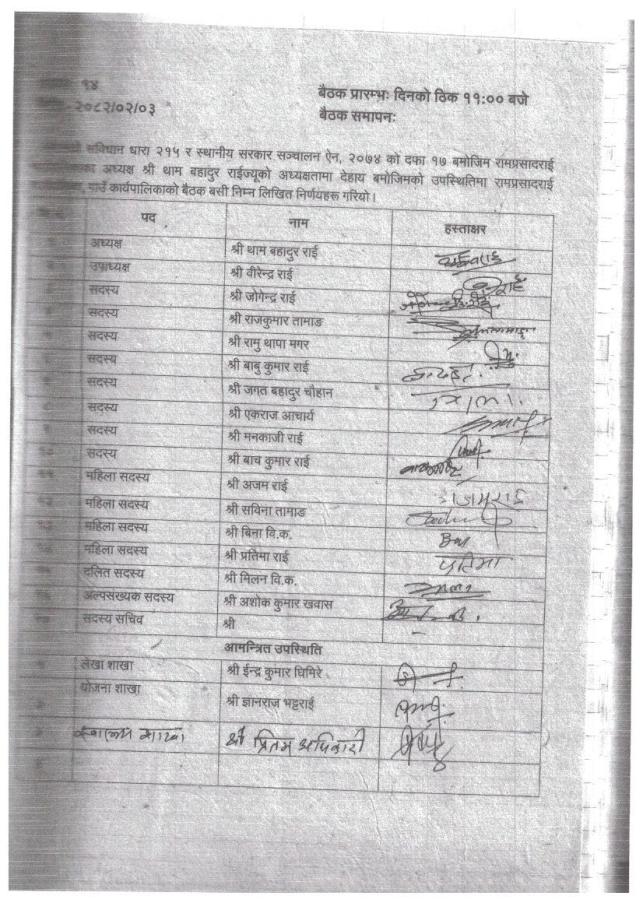 १४
बैठक प्रारम्भः दिनको ठिक ११:०० बजे
२०८२/०२/०३
बैठक समापनः
संविधान धारा २१५ र स्थानीय सरकार सञ्चालन ऐन, २०७४ को दफा १७ बमोजिम रामप्रसादराई
अध्यक्ष श्री थाम बहादुर राईज्यूको अध्यक्षतामा देहाय बमोजिमको उपस्थितिमा रामप्रसादराई
गाउँ कार्यपालिकाको बैठक बसी निम्न लिखित निर्णयहरू गरियो।
पद नाम हस्ताक्षर
अध्यक्ष श्री थाम बहादुर राई
उपाध्यक्ष श्री वीरेन्द्र राई
सदस्य श्री जोगेन्द्र राई
सदस्य श्री राजकुमार तामाङ
सदस्य श्री रामु थापा मगर
सदस्य श्री बाबु कुमार राई
सदस्य श्री जगत बहादुर चौहान
सदस्य श्री एकराज आचार्य
सदस्य श्री मनकाजी राई
सदस्य श्री बाच कुमार राई
महिला सदस्य श्री अजम राई
महिला सदस्य श्री सविना तामाङ
महिला सदस्य श्री बिना वि.क.
महिला सदस्य श्री प्रतिमा राई प्रतिमा
दलित सदस्य श्री मिलन वि.क.
अल्पसंख्यक सदस्य श्री अशोक कुमार खवास
सदस्य सचिव श्री
आमन्त्रित उपस्थिति
लेखा शाखा श्री ईन्द्र कुमार घिमिरे
योजना शाखा श्री ज्ञानराज भट्टराई
स्वास्थ्य शाखा श्री प्रितम अधिकारी